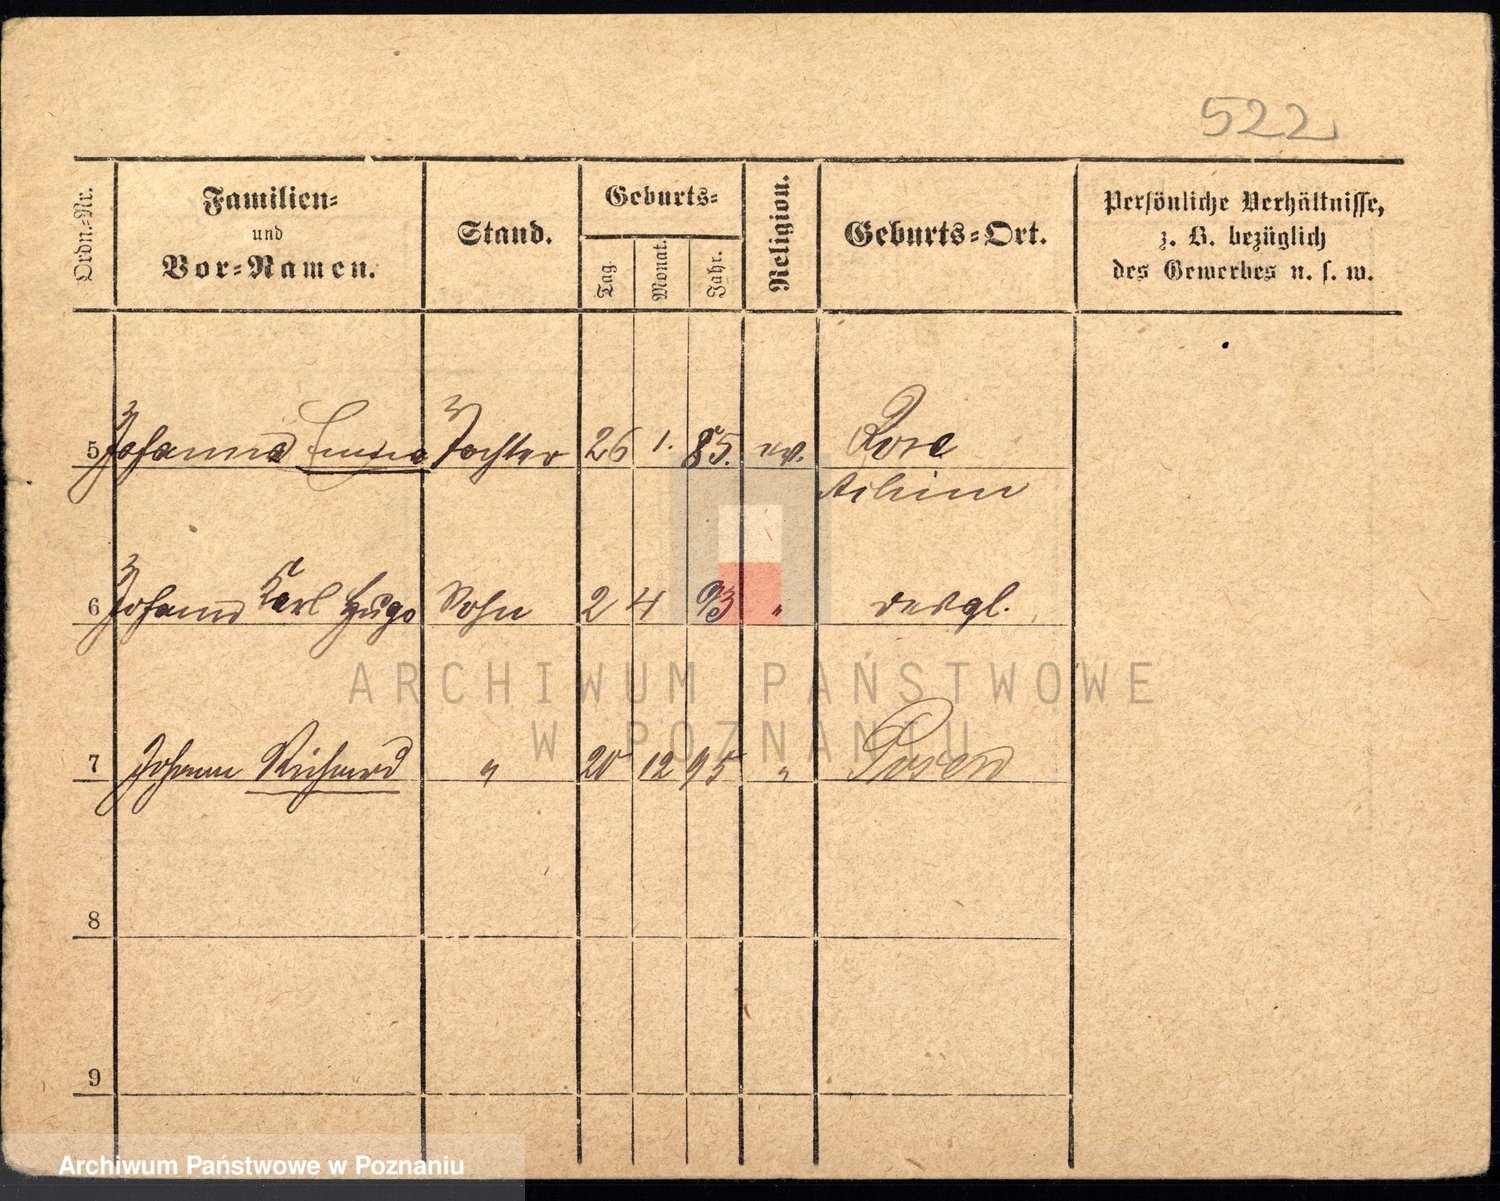 522
Ordn.-Nr.
Familien-
und
Vor-Namen.
Stand.
Geburts-
Tag.
Monat.
Jahr.
Religion.
Geburts-Ort.
Persönliche Verhältnisse,
z. B. bezüglich
des Gewerbes u. s. w.
5 Johanna Tochter 26 1. 85. ev.
6 Johann Karl Hugo Sohn 2 4 93 " desgl.
7 Johann Richard " 20 12 95 " Posen
8
9
ARCHIWUM PAŃSTWOWE
W POZNANIU
Archiwum Państwowe w Poznaniu